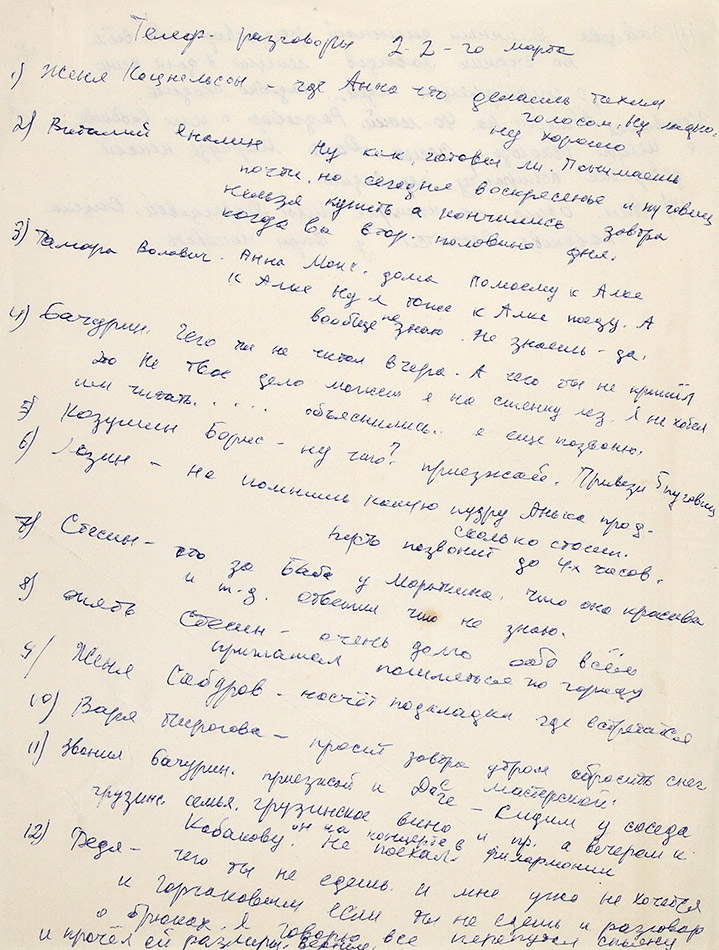 Телеф. разговоры 22-го марта
1) Женя Кацнельсон - где Анна что делаешь тихим
голосом, ну ладно.
2) Виталий ну хорошо
Ну как, готовы ли. Понимаешь
почти, но сегодня воскресенье и пуговиц
нельзя купить а кончились завтра
когда во втор. половине дня.
3) Тамара Волович. Анна Монс. дома помоему к Алке
к Алке ну я тоже к Алке поеду. А
вообще не знаю. Не знаешь - да.
4) Бачурин. Чего ты не читал вчера. А чего ты не пришёл
Это не твоё дело может я на стенку лез. Я не хотел
им читать..... объяснились. я еще позвоню.
5) Козумин Борис - ну что? приезжай. Привези 5 пуговиц
6) Лезин - не помнишь какую пудру Анька прод-
сколько стоит.
пусть позвонит до 4х часов.
7) Стесин - что за баба у Мораткина, что она красива
и т.д. ответил что не знаю.
8) опять Стесин - очень долго обо всём
приглашал пошляться по городу
9) Женя Сабуров - насчёт подкладки где встретится
10) Варя Пирогова - просит завтра утром сбросить снег
с мастерской.
11) Звонил Бачурин. приезжай к Даче - сидим у соседа
грузин. семья. грузинское вино и пр. а вечером к
Кабакову. Не поехал. он на концерте в филармонии
12) Федя - чего ты не едешь. и мне уже не хочется
к Горчаковым если ты не едешь и разговор
о брюках. Я говорю все перепутал
и прочёл ей размеры